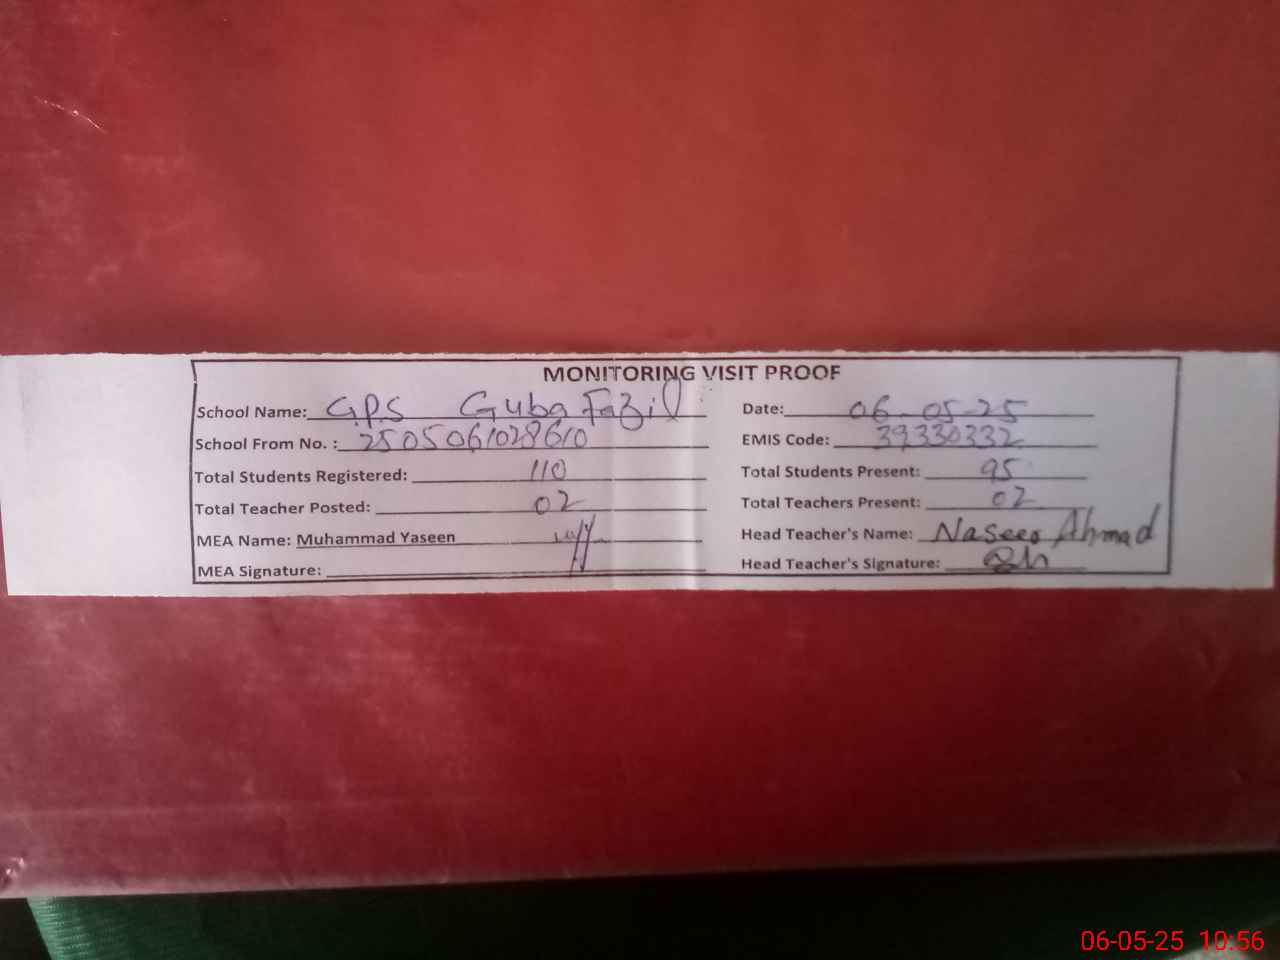 MONITORING VISIT PROOF
School Name: G.P.S Guba Fazil Date: 06-05-25
School From No. : 2505061028610 EMIS Code: 39330332
Total Students Registered: 110 Total Students Present: 95
Total Teacher Posted: 02 Total Teachers Present: 02
MEA Name: Muhammad Yaseen Head Teacher's Name: Naseer Ahmad
MEA Signature: Head Teacher's Signature:
06-05-25 10:56